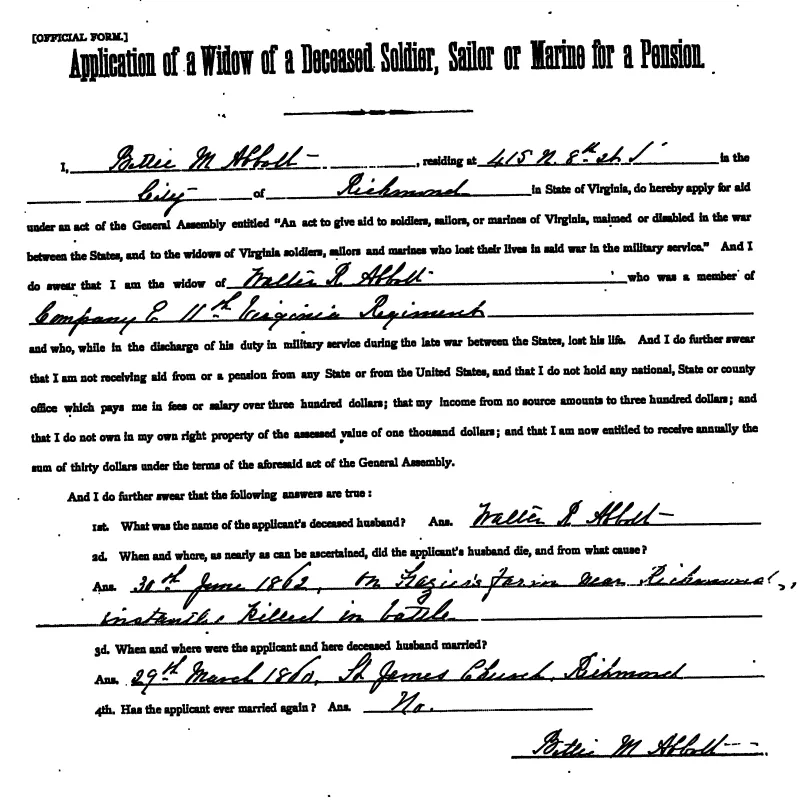 [OFFICIAL FORM.]
Application of a Widow of a Deceased Soldier, Sailor or Marine for a Pension.
I, Bettie M Abbott , residing at 415 N. 8th st. in the
City of Richmond in State of Virginia, do hereby apply for aid
under an act of the General Assembly entitled "An act to give aid to soldiers, sailors, or marines of Virginia, maimed or disabled in the war
between the States, and to the widows of Virginia soldiers, sailors and marines who lost their lives in said war in the military service." And I
do swear that I am the widow of Walter R Abbott who was a member of
Company E 11th Virginia Regiment
and who, while in the discharge of his duty in military service during the late war between the States, lost his life. And I do further swear
that I am not receiving aid from or a pension from any State or from the United States, and that I do not hold any national, State or county
office which pays me in fees or salary over three hundred dollars; that my income from no source amounts to three hundred dollars; and
that I do not own in my own right property of the assessed value of one thousand dollars; and that I am now entitled to receive annually the
sum of thirty dollars under the terms of the aforesaid act of the General Assembly.
And I do further swear that the following answers are true:
1st. What was the name of the applicant's deceased husband? Ans. Walter R Abbott
2d. When and where, as nearly as can be ascertained, did the applicant's husband die, and from what cause?
Ans. 30th June 1862, on Frazier's farm near Richmond,
instantly killed in battle
3d. When and where were the applicant and here deceased husband married?
Ans. 29th March 1860, St James Church, Richmond
4th. Has the applicant ever married again? Ans. No.
Bettie M Abbott